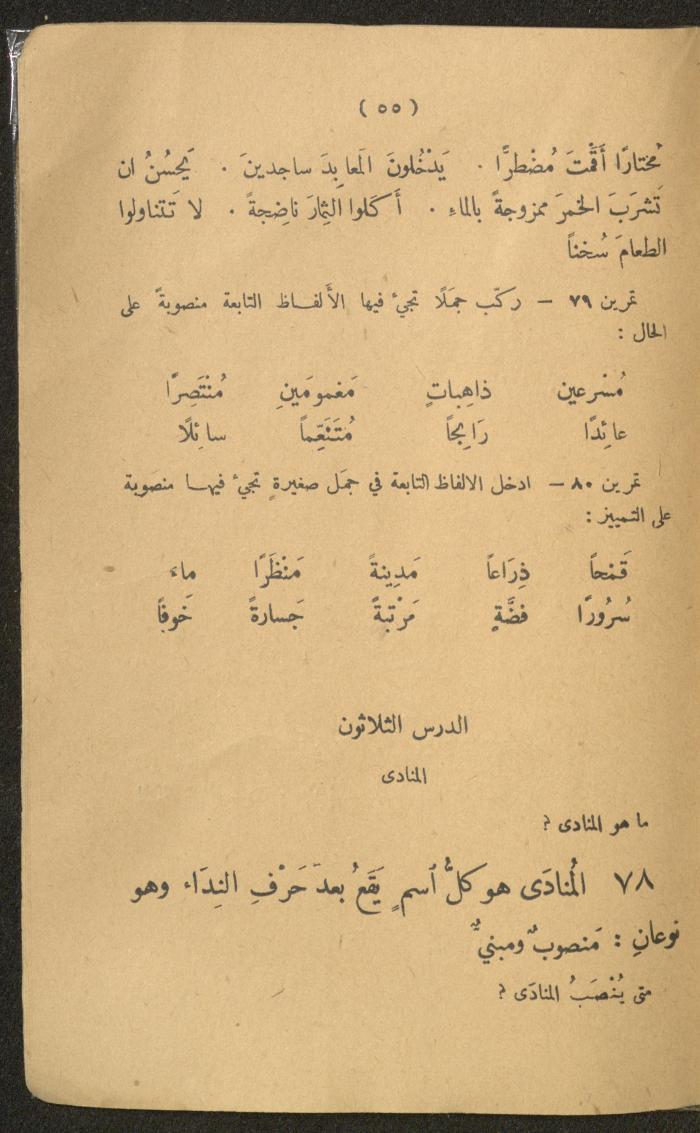 ( ٥٥ )
مُختارًا أَقَمْتَ مُضْطَرًّا . يَدْخُلُونَ المَعابِدَ ساجدينَ . يَحسُنُ ان
تَشرَبَ الخمرَ ممزوجةً بالماءِ . أَكَلوا الثِّمارَ ناضِجةً . لا تَتناولوا
الطعامَ سُخناً
تمرين ٧٩ – ركّب جمَلًا تجيءُ فيها الأَلفاظ التابعة منصوبةً على
الحال :
مُسْرعين ذاهِباتٍ مَغمومَينِ مُنْتَصِرًا
عائِدًا رَابِحاً مُتَنَعِّماً سائِلًا
تمرين ٨٠ – ادخل الالفاظ التابعة في جمَل صغيرةٍ تجيءُ فيها منصوبة
على التمييز :
قَمْحاً ذِرَاعاً مَدِينةً مَنْظَرًا ماءً
سُرُورًا فضَّةٍ مَرْتبَةً جَسارةً خَوفاً
الدرس الثلاثون
المنادى
ما هو المنادى ؟
٧٨ المُنادَى هو كلُّ ٱسمٍ يَقَعُ بعدَ حَرْفِ النِدَاء وهو
نوعانِ : مَنصوبٌ ومبنيٌّ
متى يُنْصَبُ المنادَى ؟